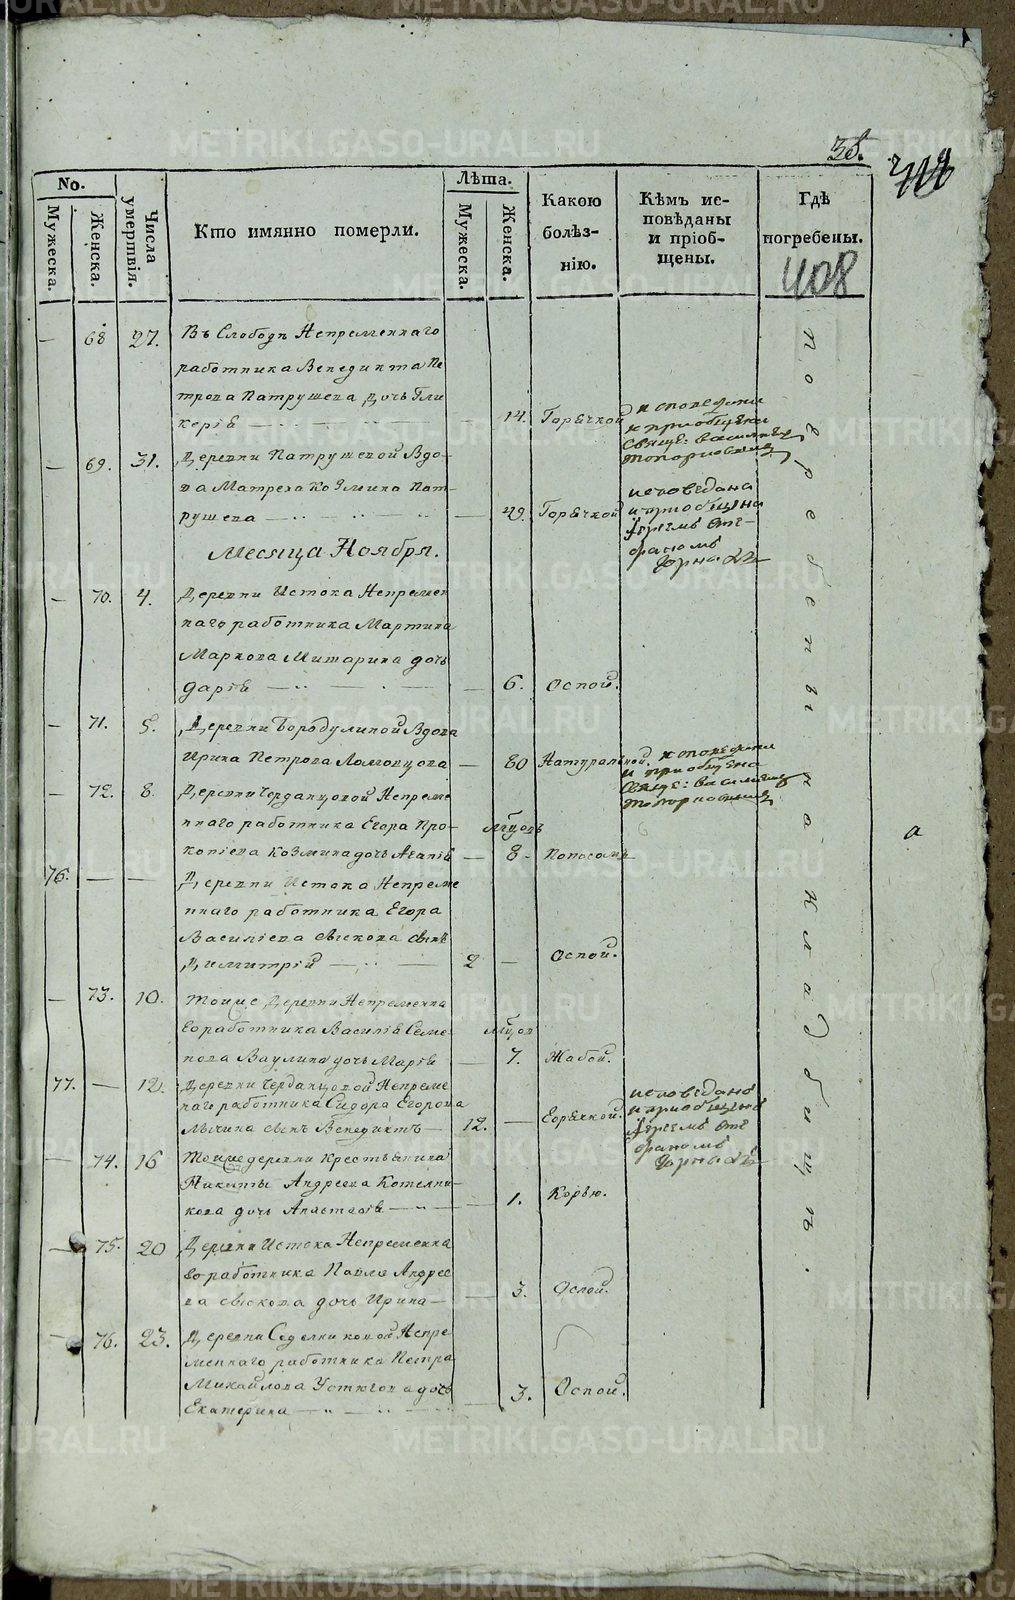 METRIKI.GASO-URAL.RU
38.
408
No.
Мужеска.
Женска.
Числа умертвія.
Кто имянно померли.
Лѣта.
Мужеска.
Женска.
Какою болѣз-нію.
Кѣмъ ис-повѣданы и пріоб-щены.
Гдѣ погребены.
— 68 27. Въ Слободѣ Непременнаго
работника Венедикта Пе
трова Патрушева дочь Гли
керіѣ — 14. Горѣчкой исповедана
и приобщена
Свяще: василиемъ
топорковымъ
— 69. 31. Деревни Патрушевой Вдо-
ва Матрена Козмина Пат-
рушева — 49. Горѣчкой исповедана
и приобщена
Іереемъ Сте-
фаномъ
Месяца Ноября.
— 70. 4. Деревни Истока Непремен
наго работника Мартина
Маркова Митарина дочь
дарiѣ — 6. Оспой.
— 71. 5. Деревни Бородулиной Вдова
Ирина Петрова Ломовцова — 80 Натуральной. исповедана
и приобщена
Свяще: василиемъ
топорковымъ
— 72. 8. Деревни Черданцовой Непреме
ннаго работника Егора Про-
копiева Козмина дочь Агапiѣ — мцовъ 8. Поносомъ
76. — — Деревни Истока Непреме
ннаго работника Егора
Василiева Свѣкова сынъ
Димитрiй — 2 — Оспой.
— 73. 10. Тоиже Деревни Непременна
го работника Василiѣ Семе
нова Ваулина дочь Марiѣ — мцов 7. Жабой.
77. — 12. Деревни Черданцовой Непреме
ннаго работника Сидора Егорова
Лычина сынъ Венедиктъ — 12. — Горѣчкой. исповеданъ
и приобщенъ
Іереемъ Сте
фаномъ
— 74. 16 Тоиже деревни крестьянина
Никиты Андреева Котелни-
кова дочь Анастасiѣ — 1. Корью.
— 75. 20 Деревни Истока Непременна
го работника Павла Андрее
ва Свѣкова дочь Ирина — 3. Оспой.
— 76. 23. Деревни Седелниковой Непре
меннаго работника Петра
Михайлова Устюгова дочь
Екатерина — 3. Оспой.
Погребены на кладбищѣ.
а